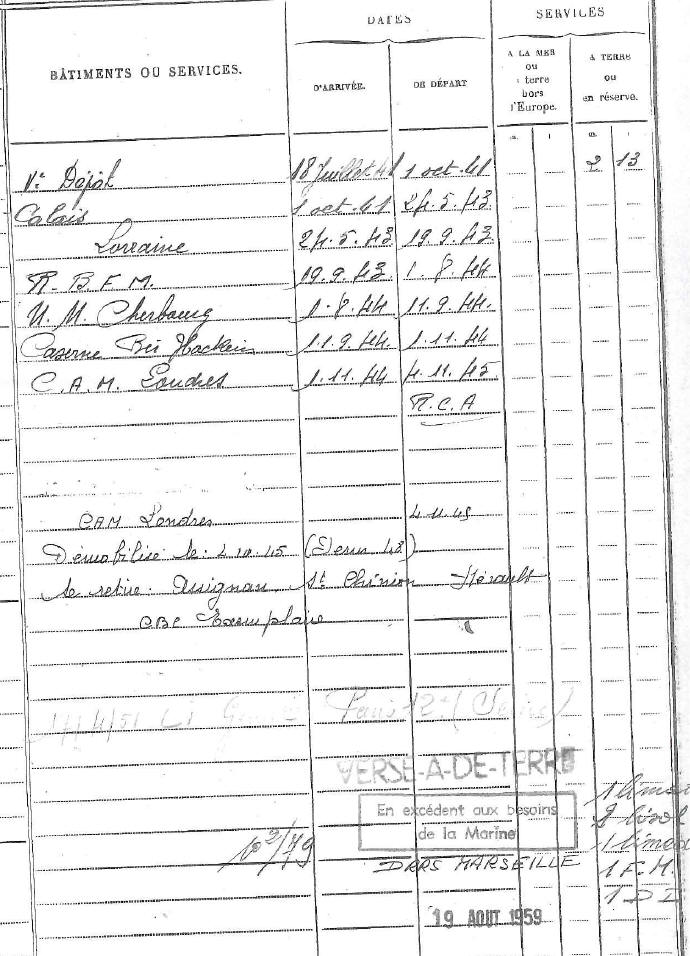 DATES
SERVICES
BÂTIMENTS OU SERVICES.
D'ARRIVÉE.
DE DÉPART
A LA MER
ou
à terre
hors
l'Europe.
A TERRE
ou
en réserve.
m. j. m. j.
Vᵉ Dépôt 18 Juillet 41 1 oct. 41 2 13
Calais 1 oct. 41 24.5.43
Lorraine 24.5.43 19.9.43
R.B.F.M. 19.9.43 1.8.44
U.M. Cherbourg 1.8.44 11.9.44
Caserne Bir Hackeim 11.9.44 1.11.44
C.A.M. Londres 1.11.44 4.11.45
R.C.A
CAM Londres 4.11.45
Démobilisé le: (Servs 48)
Se retire: St Chinian Hérault
CBC Exemplaire
Paris 12e (Seine)
VERSÉ-A-DE-TERRE
En excédent aux besoins
de la Marine
DRRS MARSEILLE
1 F.M.
1 D I
19 AOUT 1959